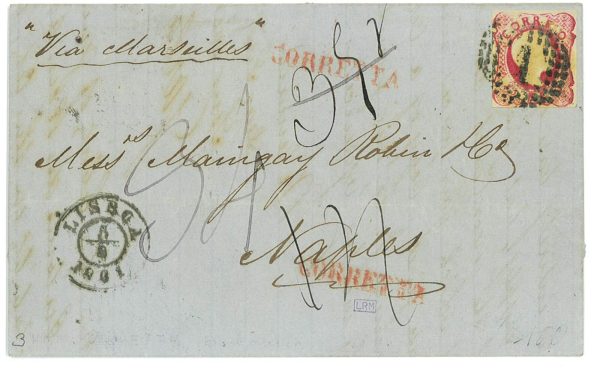 "Via Marseilles"
CORREIO
CORRETTA
1
Mess.rs Maingay Robin & Co
34
LISBOA
1861
Naples
CORRETTA
LRM
3